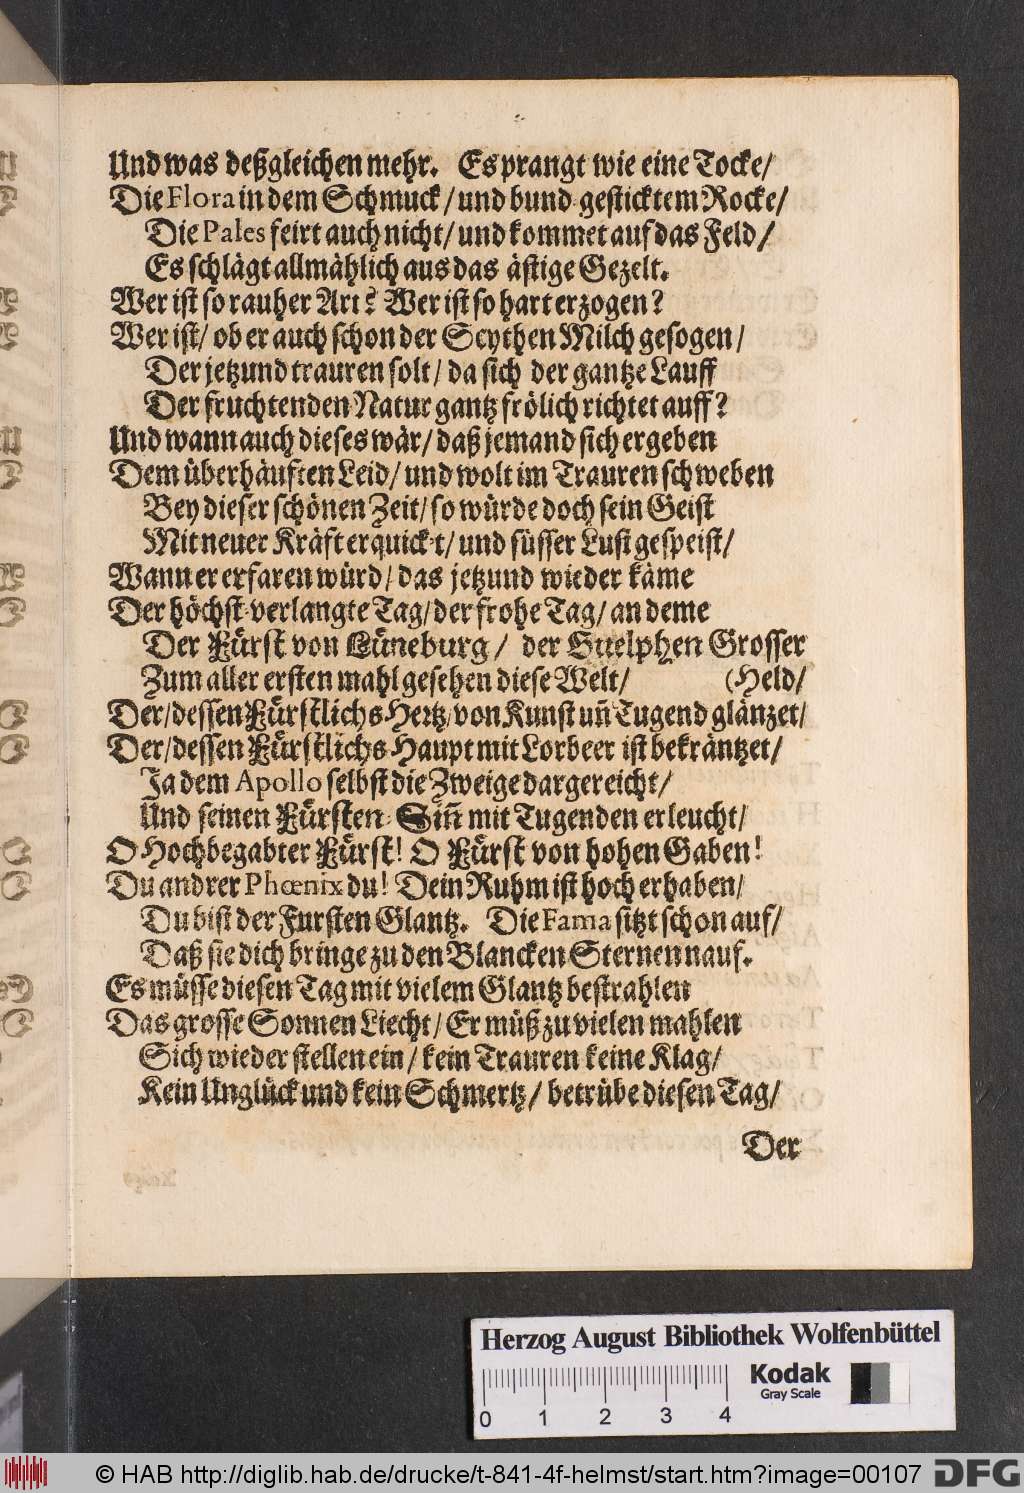 Und was deßgleichen mehr. Es prangt wie eine Tocke/
Die Flora in dem Schmuck/ und bund-gesticktem Rocke/
Die Pales feirt auch nicht/ und kommet auf das Feld/
Es schlägt allmählich aus das ästige Gezelt.
Wer ist so rauher Art? Wer ist so hart erzogen?
Wer ist/ ob er auch schon der Scythen Milch gesogen/
Der jetzund trauren solt/ da sich der gantze Lauff
Der fruchtenden Natur gantz frölich richtet auff?
Und wann auch dieses wär/ daß jemand sich ergeben
Dem überhäuften Leid/ und wolt im Trauren schweben
Bey dieser schönen Zeit/ so würde doch sein Geist
Mit neuer Kräft erquick-t/ und süsser Lust gespeist/
Wann er erfaren würd/ das jetzund wieder käme
Der höchst-verlangte Tag/ der frohe Tag/ an deme
Der Fürst von Lüneburg/ der Guelphen Grosser
Zum aller ersten mahl gesehen diese Welt/ (Held/
Der/ dessen Fürstlichs Hertz/ von Kunst uñ Tugend glänzet/
Der/ dessen Fürstlichs Haupt mit Lorbeer ist bekräntzet/
Ja dem Apollo selbst die Zweige dargereicht/
Und seinen Fürsten-Siñ mit Tugenden erleucht/
O Hochbegabter Fürst! O Fürst von hohen Gaben!
Du andrer Phœnix du! Dein Ruhm ist hoch erhaben/
Du bist der Fursten Glantz. Die Fama sitzt schon auf/
Daß sie dich bringe zu den Blancken Sternen nauf.
Es müsse diesen Tag mit vielem Glantz bestrahlen
Das grosse Sonnen Liecht/ Er müß zu vielen mahlen
Sich wieder stellen ein/ kein Trauren keine Klag/
Kein Unglück und kein Schmertz/ betrübe diesen Tag/
Der
Herzog August Bibliothek Wolfenbüttel
Kodak
Gray Scale
0 1 2 3 4
© HAB http://diglib.hab.de/drucke/t-841-4f-helmst/start.htm?image=00107
DFG